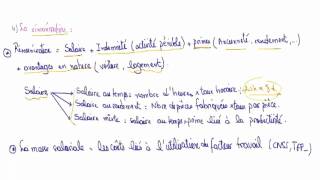 4) La rémunération :
* Rémunération = Salaire + Indemnité (activité pénible) + primes (Ancienneté, rendement, ...)
+ avantages en nature (voiture, logement).
Salaire
Salaire au temps : nombre d'heures x taux horaire.
Salaire au rendement : Nbre de pièces fabriquées x taux par pièce.
Salaire mixte : salaire au temps + prime liée à la productivité.
* La masse salariale = les coûts liés à l'utilisation du facteur travail (CNSS, TFP...)